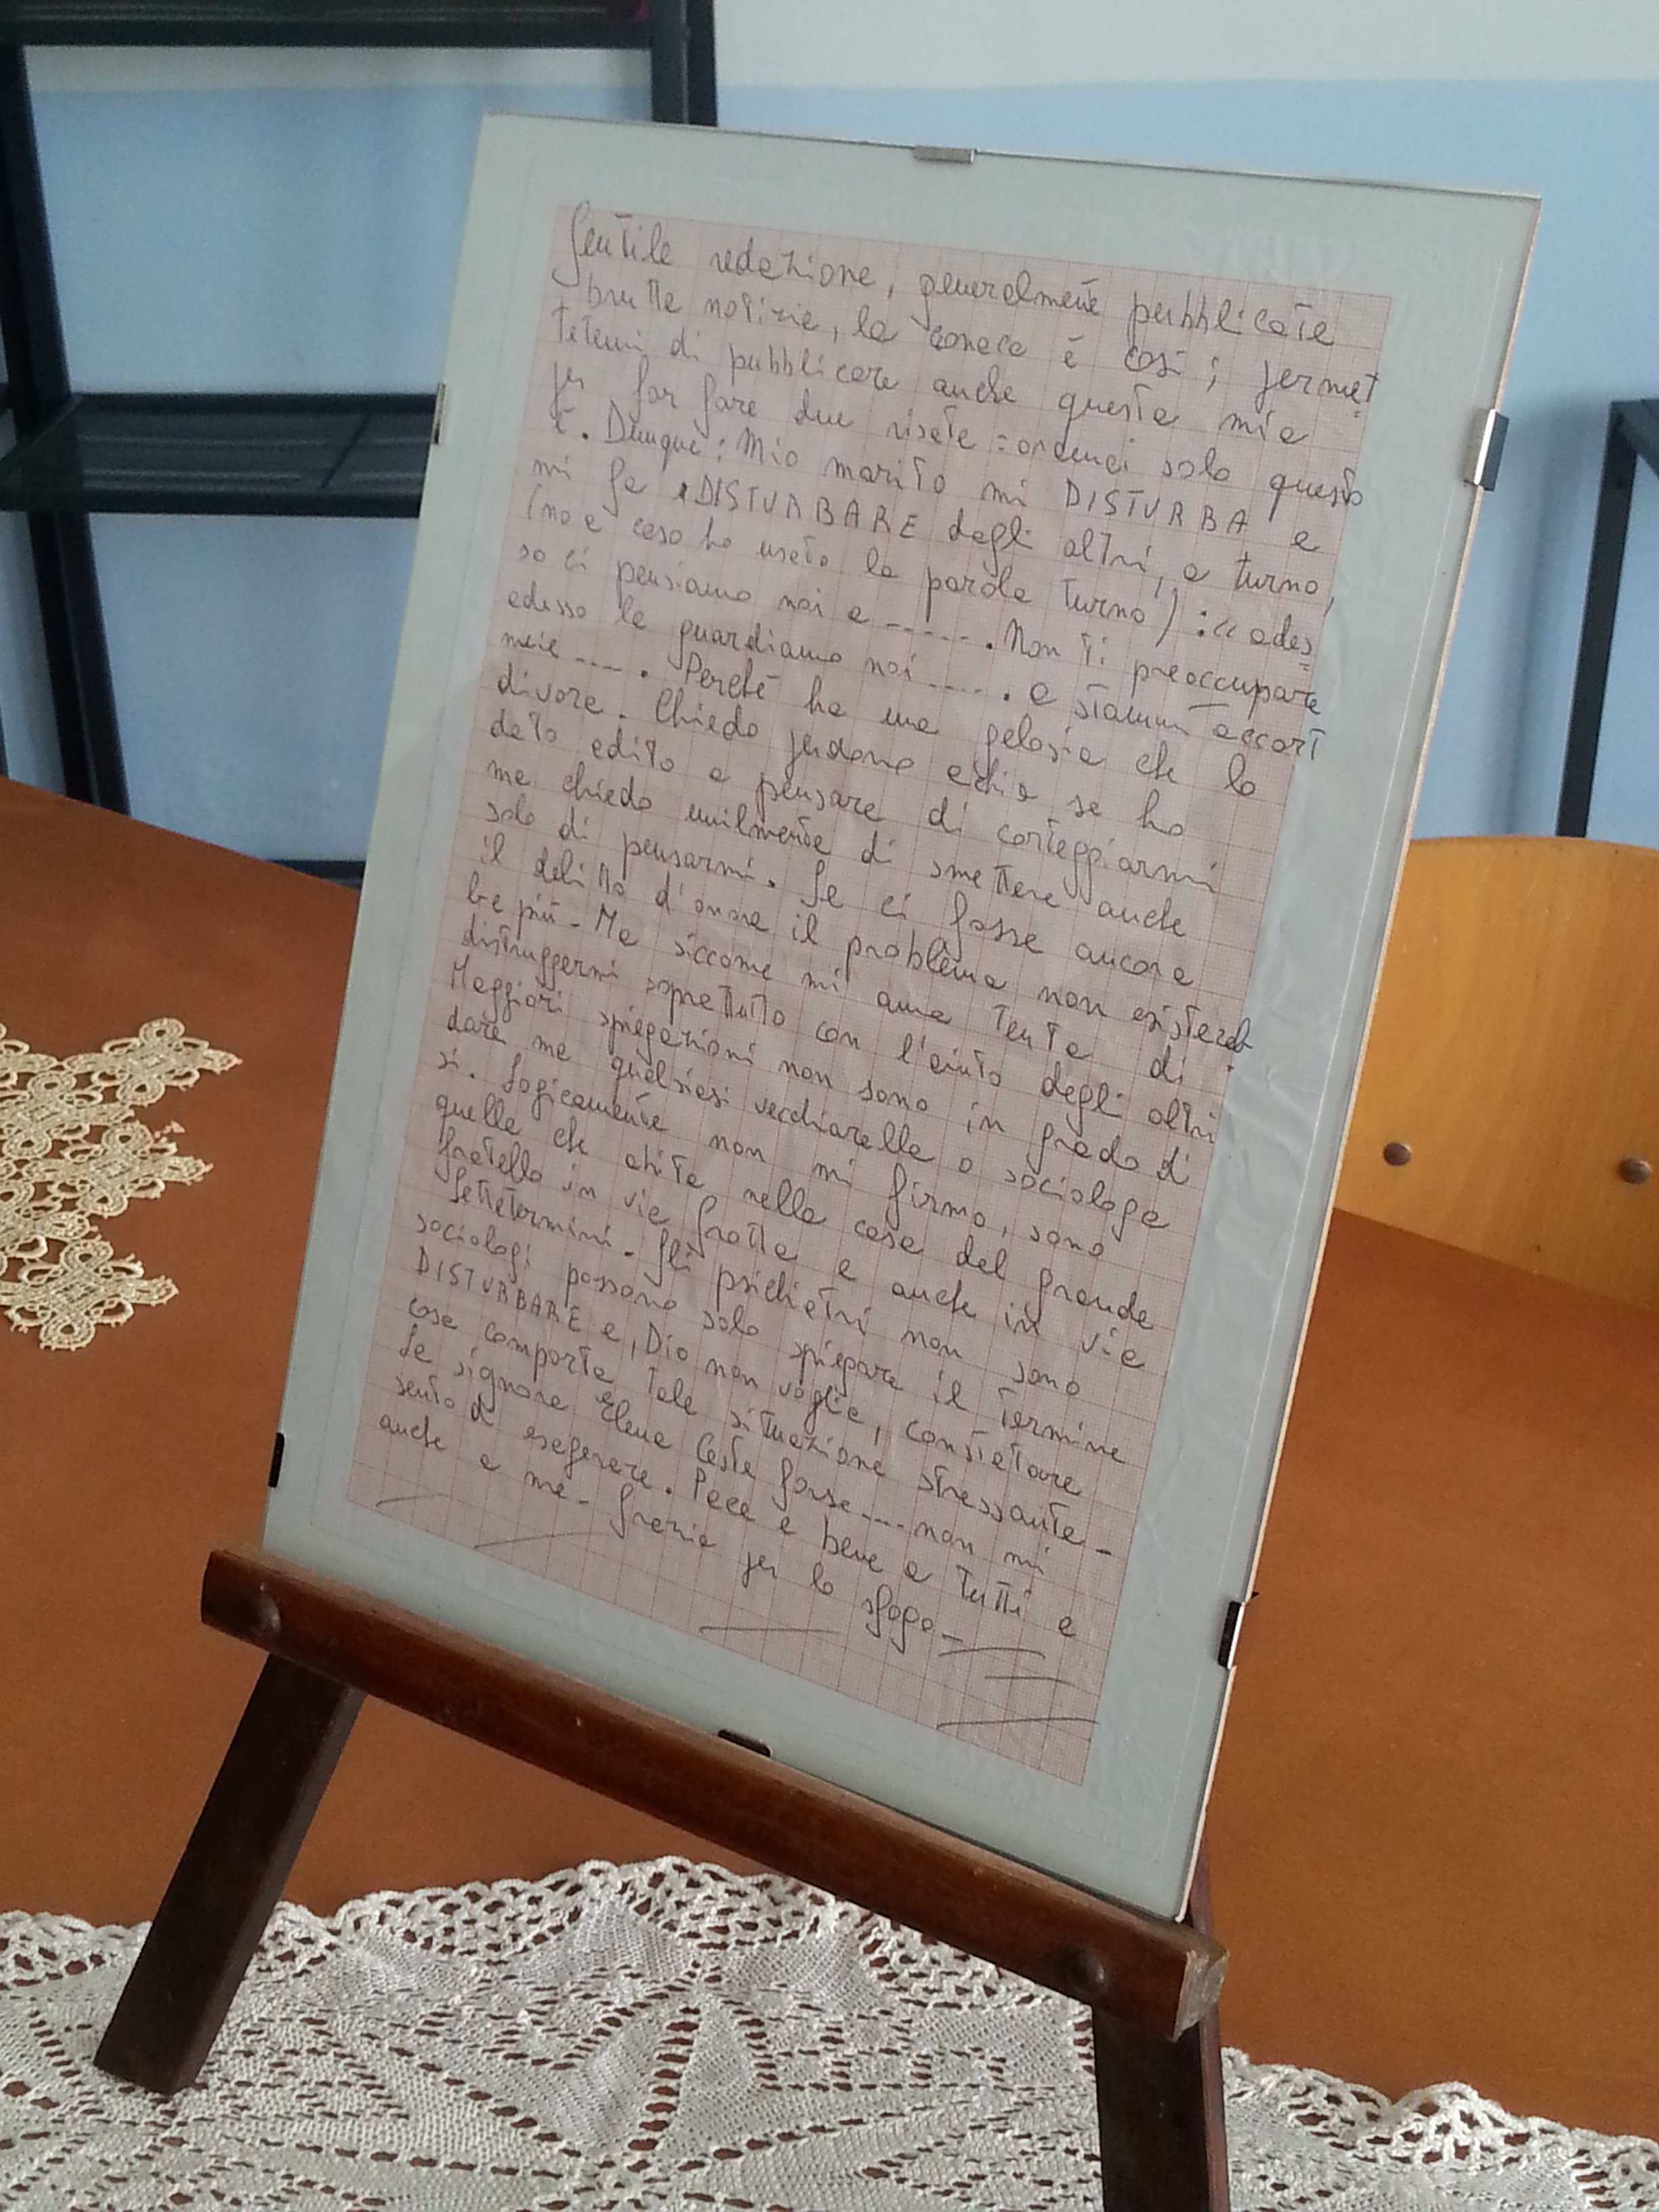 Gentile redazione, generalmente pubblicate
brutte notizie, la cronaca è così; permet
tetemi di pubblicare anche questa mia
per far fare due risate = ordunci solo questo
è. Dunque: Mio marito mi DISTURBA e
mi fa DISTURBARE dagli altri, a turno,
(no a caso ho usato la parola turno) : << ades=
so ci pensiamo noi a ------. Non ti preoccupare
adesso la guardiamo noi -----. e stamm accort
meie ----. Perché ha una gelosia che lo
divora. Chiedo perdono a chi se ho
dato adito a pensare di corteggiarmi
me chiedo umilmente di smettere anche
solo di pensarmi. Se ci fosse ancora
il delitto d'onore il problema non esistereb
be più - Ma siccome mi ama tenta di
distruggermi soprattutto con l'aiuto degli altri
Maggiori spiegazioni non sono in grado di
dare ma qualsiasi vecchiarella o sociologa
si. Logicamente non mi firmo, sono
quella che abita nella casa del grande
fratello in via Grotta e anche in via
Setietermini. Gli psichiatri non sono
sociologi possono solo spiegare il termine
DISTURBARE e, Dio non voglia, constatare
cosa comporta tale situazione stressante -
La signora Elena Ceste forse ---- non mi
sento di esagerare. Pace e bene a tutti e
anche a me - Grazie per lo sfogo -